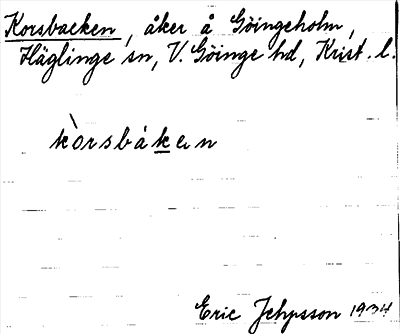 Korsbacken, åker å Göingeholm,
Häglinge sn, V. Göinge hd, Krist. l.
kòrsbàken
Eric Jehpsson 1934